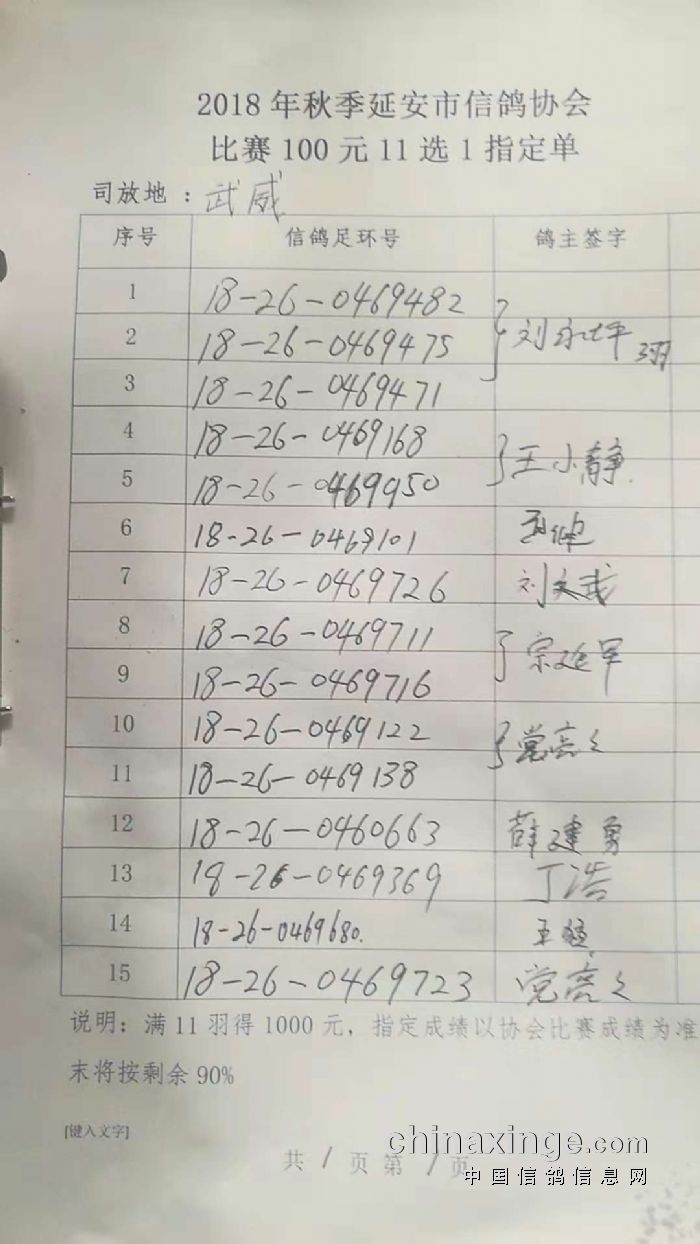 2018年秋季延安市信鸽协会
比赛100元11选1指定单
司放地：武威
序号 信鸽足环号 鸽主签字
1 18-26-0469482
2 18-26-0469475 刘永平 3羽
3 18-26-0469471
4 18-26-0469168
王小静
5 18-26-0469950
6 18-26-0469101
7 18-26-0469726 刘文武
8 18-26-0469711
宗延军
9 18-26-0469716
10 18-26-0469122
党亮亮
11 18-26-0469138
12 18-26-0460663 薛建勇
13 18-26-0469369 丁浩
14 18-26-0469680. 王
15 18-26-0469723 党亮亮
说明：满11羽得1000元，指定成绩以协会比赛成绩为准
末将按剩余90%
[键入文字]
共1页第1页
chinaxinge.com
中国信鸽信息网